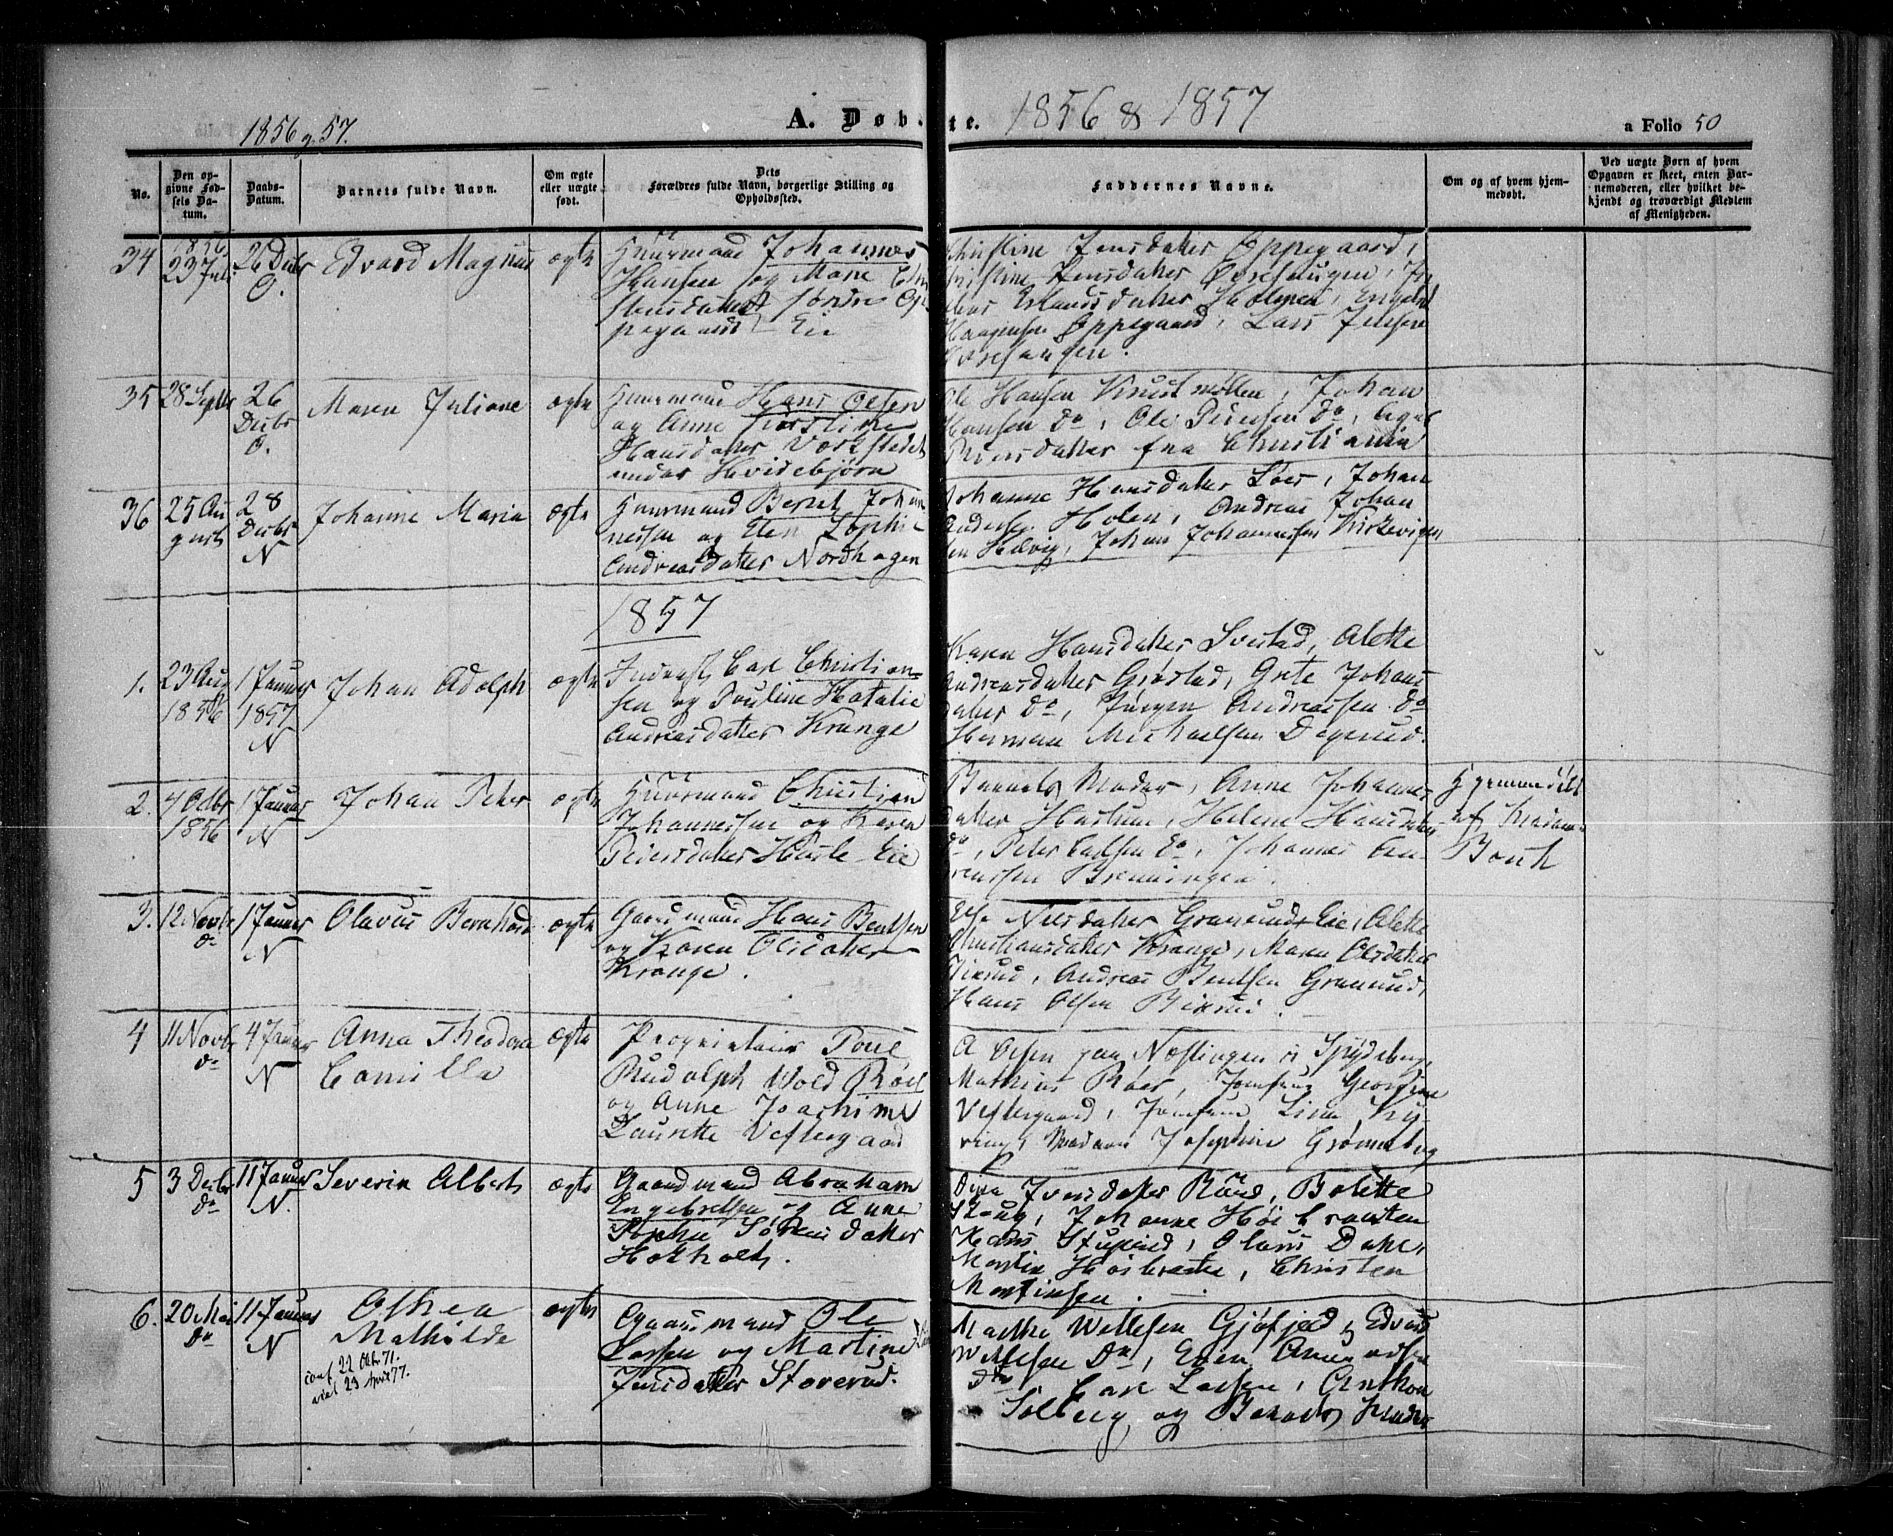 1856 & 57.
A. Døbte. 1856 & 1857
a Folio 50
No.
Den opgivne Fødsels Datum.
Daabs-Datum.
Barnets fulde Navn.
Om ægte eller uægte født.
Dets Forældres fulde Navn, borgerlige Stilling og Opholdssted.
Faddernes Navne.
Om og af hvem hjemmedøbt.
Ved uægte Børn af hvem Opgaven er skeet, enten Barnemoderen, eller hvilket bekjendt og troværdigt Medlem af Menigheden.
34
1856
23 Juli
26 Decbr
O.
Edvard Magnus
ægte
Huusmand Johannes
Hansen og Maren
søndre Op-
pegaard Eie
Christine Jensdatter Oppegaard,
Haagensen Oppegaard, Lars Jensen
35
28 Septbr
26
Decbr
O.
Maren Juliane
ægte
Huusmand Hans Olsen
og Anne Kirstine
Hansdatter Værkstedet
under Hvidebjørn
Ole Hansen Knudsmøllen, Johan
Hansen do, Ole Pedersen do,
fra Christiania
36
25 Au
gust
28
Decbr
N
Johanne Maria
ægte
Huusmand Bernt Johan-
nessen og Elen Sophie
Andreasdatter Nordhagen
Johanne Hansdatter Løes, Johan
Holen, Andreas Johan
sen Solvig, Johan Johannessen Kirkevigen
1857
1.
23 Aug
1856
1 Januar
1857
N
Johan Adolph
ægte
Inderst Carl Christian-
sen og Pouline Natalie
Andreasdatter Krange
Karen Hansdatter Svestad, Alette
Andreasdatter Grøstad, Grete Johans
datter do, Jørgen Andreassen do
Herman Michaelsen Dagerud.
2.
4 Octbr
1856
1 Januar
N
Johan Peter
ægte
Huusmand Christian
Johannessen og Karen
Pedersdatter Hasle Eie
Barnets Moder, Anne Johannes
datter Haslum, Helene Hansdatter
do, Peter Carlsen do, Johannes An-
dreassen Brenningen.
Hjemmedøbt
af Madam
Bonk
3.
12 Novbr
do
1 Januar
N
Olavus Bernhard
ægte
Gaardmand Hans Bentsen
og Karen Olsdatter
Krange.
Else Nilsdatter Granerud Eie, Alette
Christiansdatter Krange, Maren Olsdatter
Bixrud, Andreas Bentsen Granerud,
Hans Olsen Bixrud.
4
11 Novbr
do
4 Januar
N
Anna Theodora
Camilla
ægte
Proprietair Poul
Rudolph Wold Röer
og Anne Joachime
Laurette Vestergaard
A Olsen paa Næslingen i Spydeberg,
Mathias Röer, Jomfrue Georgine
Vestergaard, Jomfrue Lina
Madam Josephine Grønneberg
5
3 Decbr
do
11 Januar
N.
Severin Albert
ægte
Gaardmand Abraham
Engebretsen og Anne
Sophie Sörensdatter
Hokholt.
Iversdatter Röed, Bolette
Skoug, Johanne Höi braaten
Hans Stuperud, Olaus Dahl,
Martin Høibraaten, Christen
Martinsen.
6.
20 Mai
do
11 Januar
N
Asthea
Mathilde
ægte
conf. 22 Oktr 71.
viet 23 April 77.
Gaardmand Ole
Larsen og Martine
Jensdatter Storerud.
Marthe Wettesen Gjøfjeld, Edvard
Wettesen do, Even Amundsen
do, Carl Larsen, Anthon
Solberg og Barnets Fader